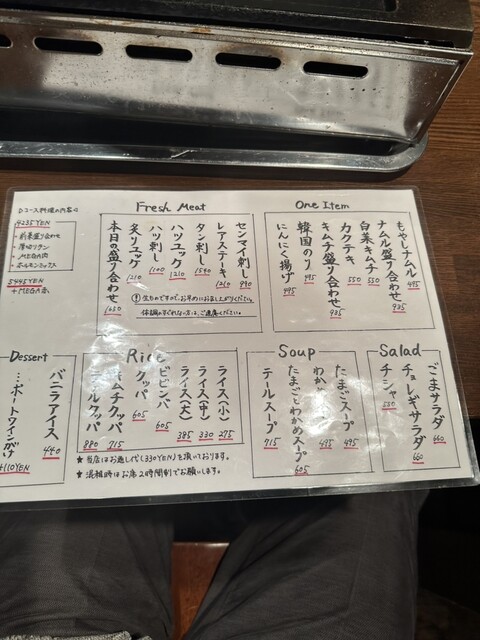 Dコース料理の内容
4235YEN
・前菜盛り合わせ
・厚切りタン
・MEGA肉
・ホルモンミックス
5445YEN
+MEGA
Fresh Meat
センマイ刺し 990
レアステーキ 1210
タン刺し 1540
ハツユッケ 1210
ハツ刺し 1100
炙りユッケ 1210
本日の盛り合わせ 1650
! 生ものですので、お早めにお召し上がりください。
体調のすぐれない方は、ご遠慮ください。
One Item
もやしナムル 495
ナムル盛り合わせ 925
白菜キムチ 550
カクテキ 550
キムチ盛り合わせ 925
韓国のり 495
にんにく揚げ 495
Dessert
バニラアイス 440
…ポートワインがけ
+110YEN
Rice
ライス(小) 275
ライス(中) 330
ライス(大) 385
ビビンバ 605
クッパ 605
キムチクッパ 715
テールクッパ 880
Soup
たまごスープ 495
わか 495
たまごとわかめスープ 605
テールスープ 715
Salad
ごまサラダ 660
チョレギサラダ 660
チシャ 550
★当店はお通し代(330YEN)を頂いております。
★混雑時はお席2時間制でお願いします。